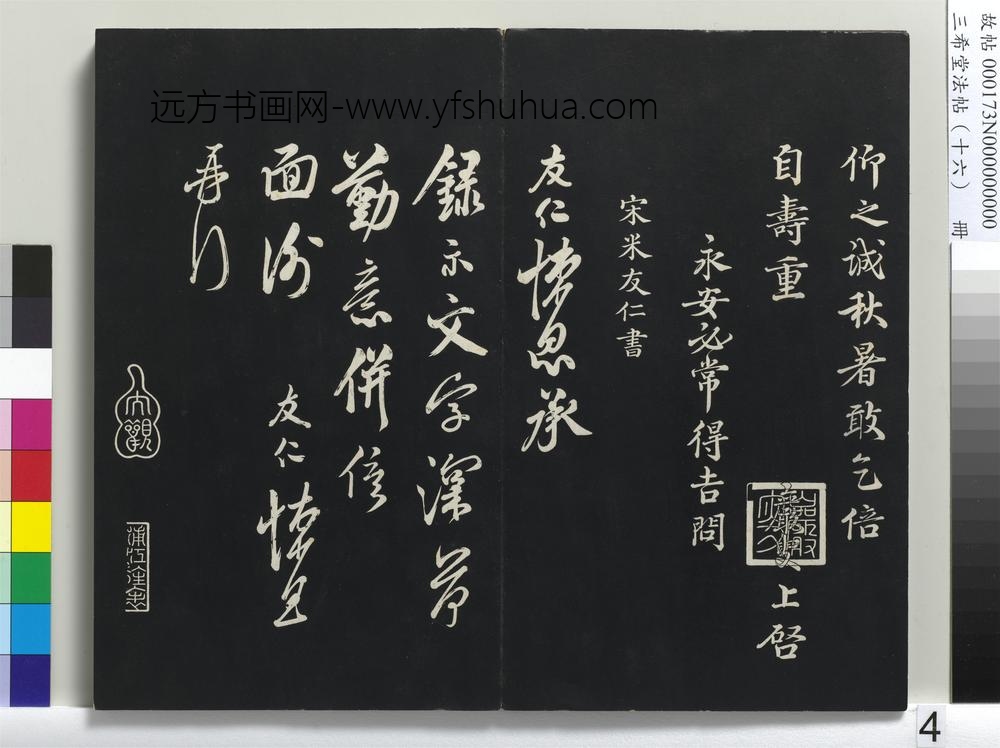 故帖 000173N000000000
三希堂法帖（十六） 冊
远方书画网-www.yfshuhua.com
仰之誠秋暑敢乞倍
自壽重 上啓
永安必常得吉問
宋米友仁書
友仁悚息承
録示文字深荷
勤意併俟
面謝 友仁悚息
再行
4